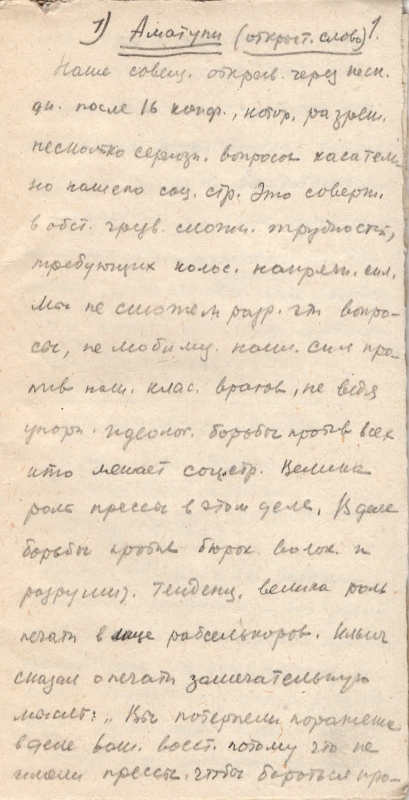 1) Аматуни (открыт. слово) 1.
Наше совещ. открыв. через неск.
дн. после 16 конф., котор. разреш.
несколько серьозн. вопросов касатель
но нашего соц. стр. Это соверш.
в обст. чрезв. сложн. трудностей,
требующих колос. напряж. сил.
Мы не сможем разр. эти вопро-
сы, не мобилиз. наши. сил про-
тив наш. клас. врагов, не ведя
упорн. идеолог. борьбы против всех
кто мешает соц. стр. Велика
роль прессы в этом деле. В деле
борьбы против бюрок. волок. и
разрушит. тенденц. велика роль
печати в лице рабселькоров. Ильич
сказал о печати замечательную
мысль: „Вы потерпели поражение
в деле ваш. восст. потому что не
имели прессы, чтобы бороться про-